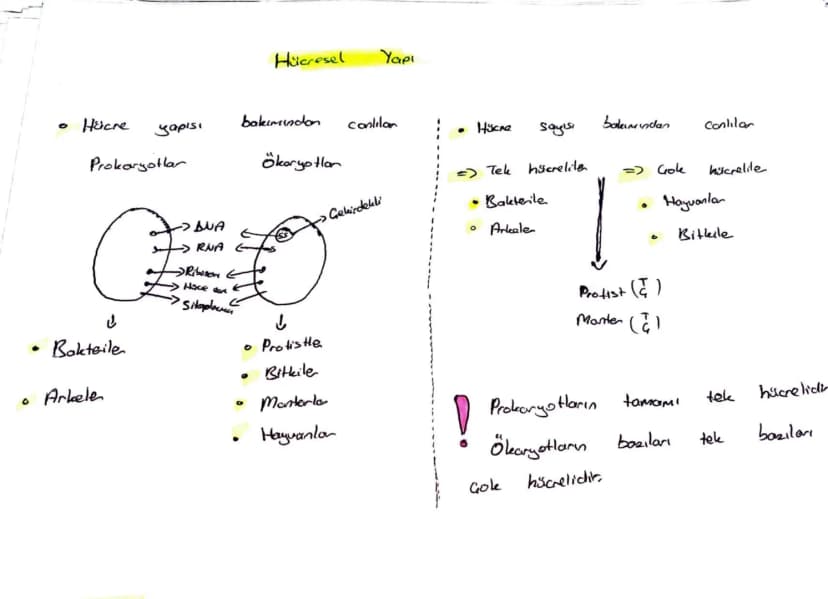 Hücresel Yapı
• Hücre yapısı bakımından canlılar
Prokaryotlar Ökaryotlar
DNA
RNA
Ribozom
Hücre zarı
Sitoplazma
Çekirdekli
• Bakteriler
• Arkeler
• Protistler
• Bitkiler
• Mantarlar
• Hayvanlar
• Hücre sayısı bakımından canlılar
=> Tek hücreliler => Çok hücreliler
• Bakteriler
• Arkeler
• Hayvanlar
• Bitkiler
Protist (T Ç)
Mantar (T Ç)
! Prokaryotların tamamı tek hücrelidir
Ökaryotların bazıları tek bazıları
Çok hücrelidir.